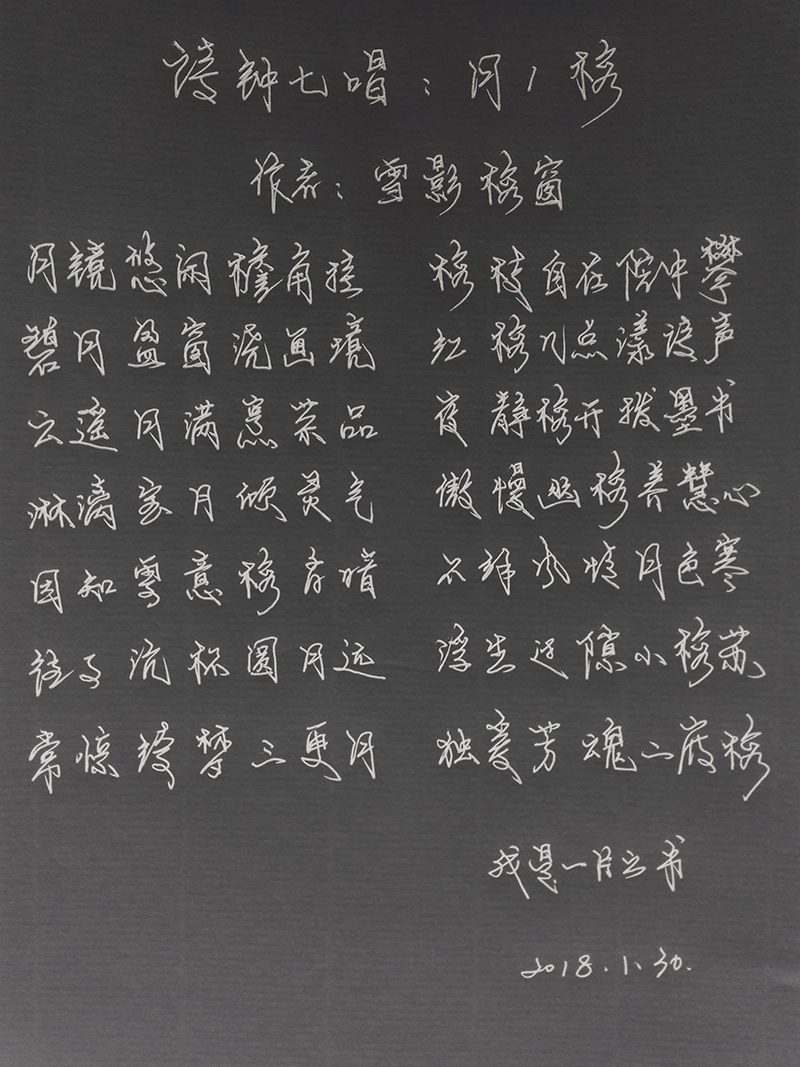 诗钟七唱：月/梅
作者：雪影梅窗
月镜悠闲檐角挂 梅枝自在院中攀
碧月盈窗浇画境 红梅几点漾诗声
云遥月满茶品 夜静梅开拨墨书
淋漓月倾灵气 傲慢幽梅养慧心
因知雪意梅香暗 不解风情月色寒
往事沉杯圆月远 浮生过隙小梅苏
常惊绮梦三更月 独爱芳魂二度梅
我是一片云书
2018.1.30.